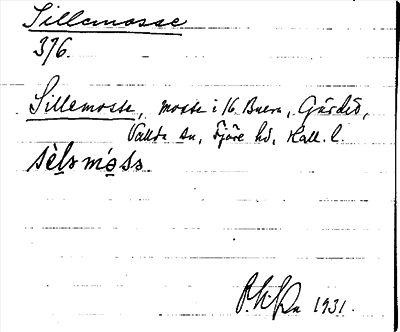 Sillemosse
376.
Sillemosse, mosse i 16 Buera, Gårdid,
Vallda sn, Fjäre hd, Hall. l.
sèl̥s mo̥sə.
1931.